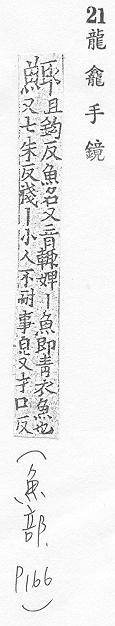 21 龍龕手鏡
鯫且鈎反魚名又音輙婢丨魚即青衣魚也
又七朱反淺丨小人不耐事皃又才口反
(魚部. P166)